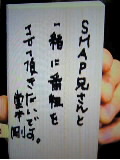 SMAP兄さんと
一緒に番組を
やって頂きたいです。
堂本剛